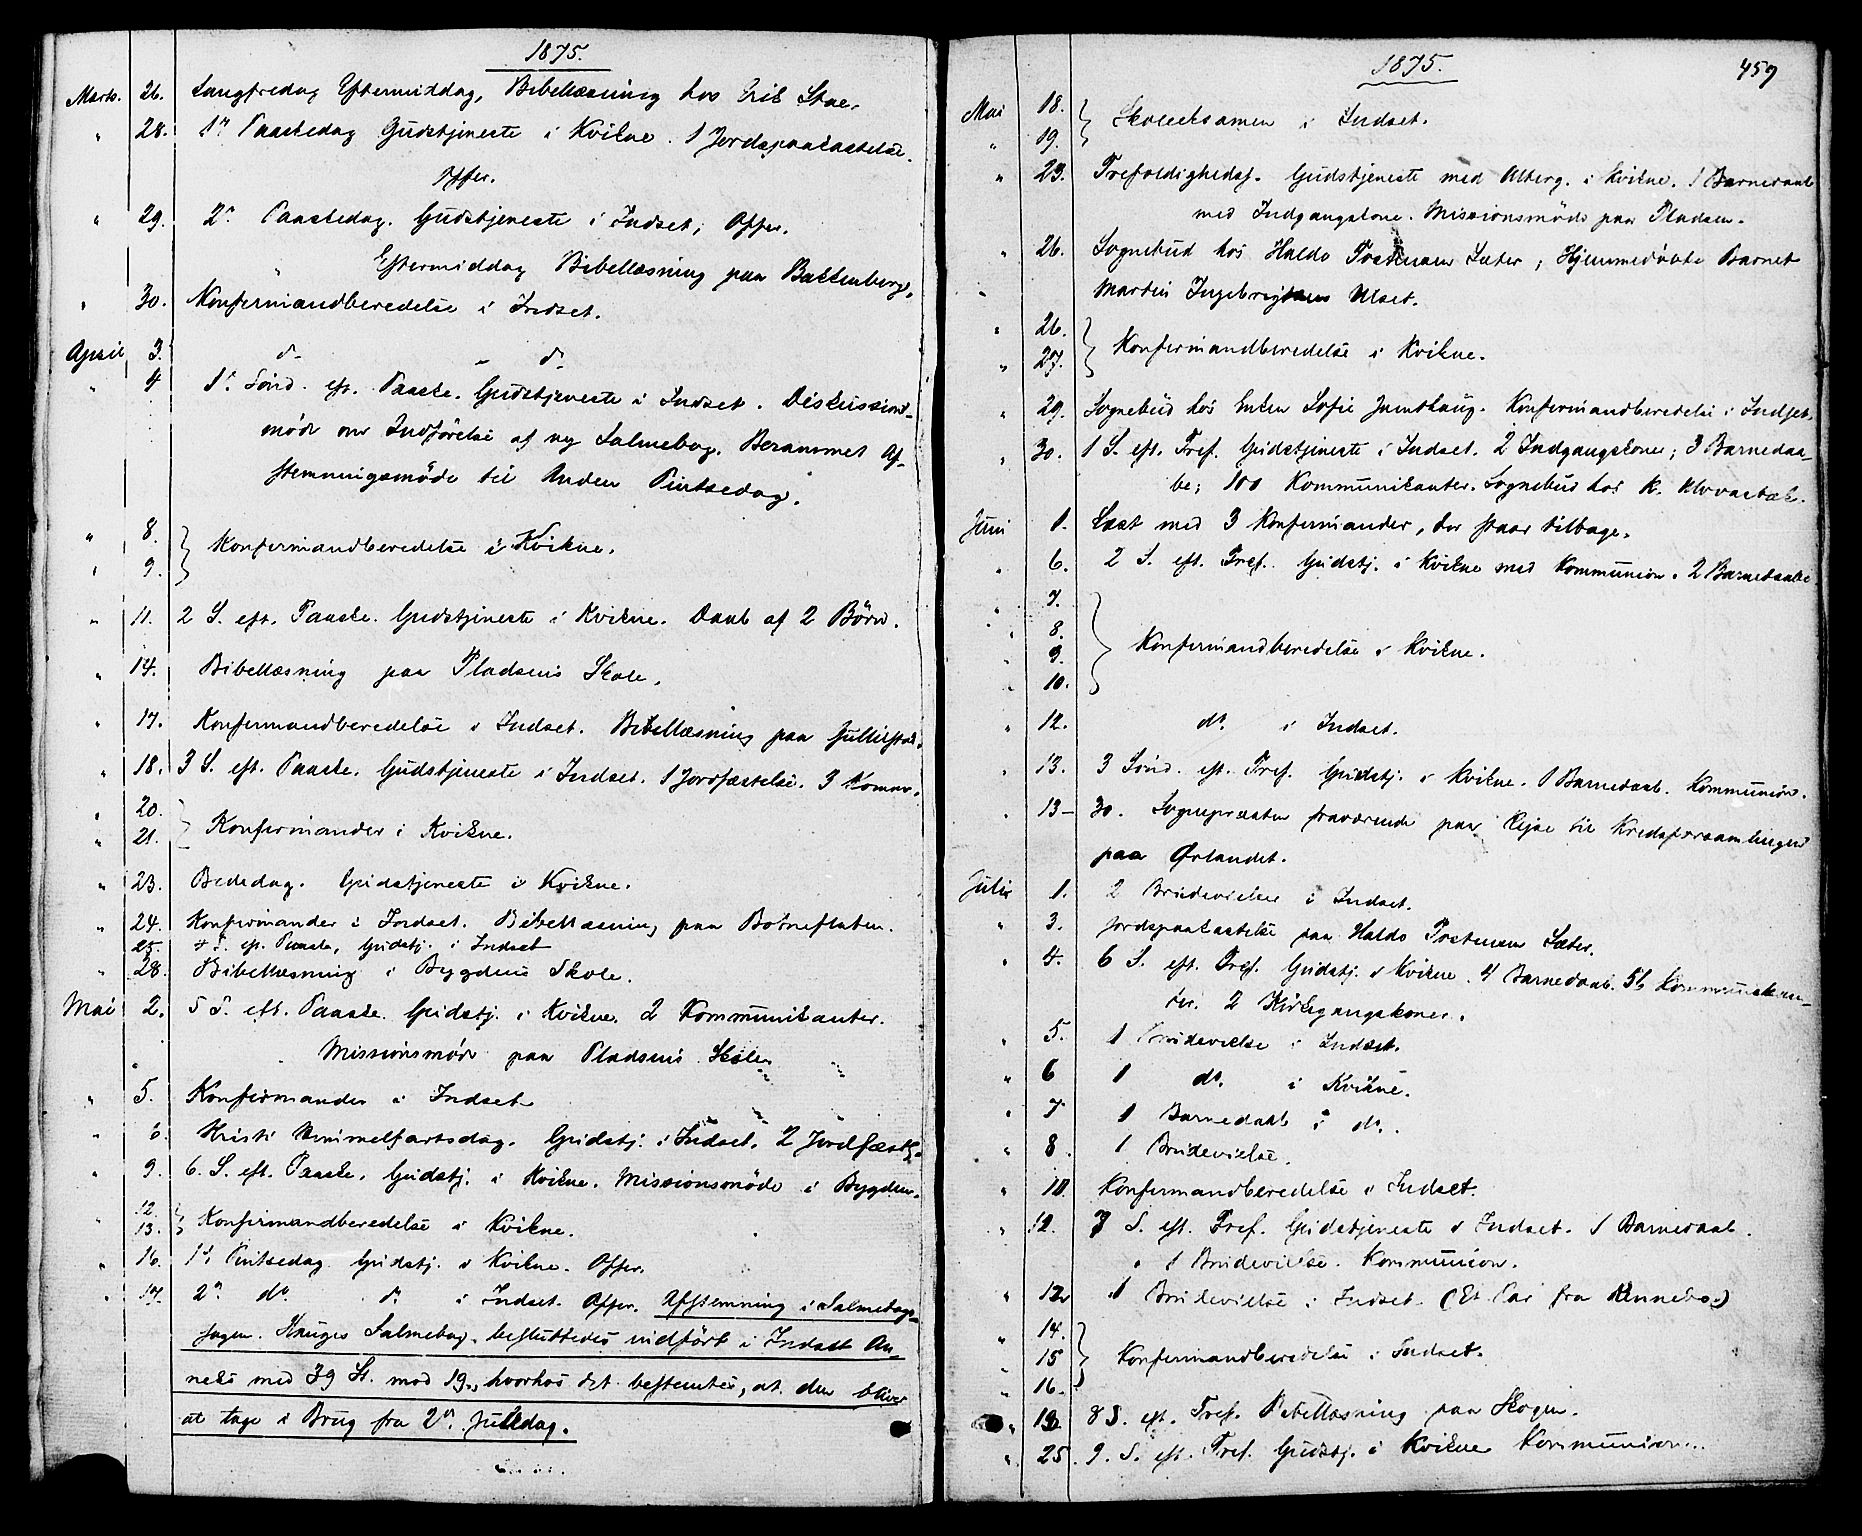 1875.
Marts. 26. Langfredag Eftermiddag, Bibellæsning hos Erik Stae.
" 28. 1n Paaskedag Gudstjeneste i Kvikne. 1 Jordspaakastelse.
Offer.
" 29. 2n Paaskedag. Gudstjeneste i Indset; Offer.
" Eftermiddag Bibellæsning paa Bakkenberg.
" 30. Konfermandberedelse i Indset.
April 3. do - do
" 4 1n Sönd. eft. Paaske. Gudstjeneste i Indset. Diskussions-
möde om Indförelse af ny Salmebog. Berammet Af-
stemningsmöde til Anden Pintsedag.
" 8.
" 9. } Konfermandberedelse i Kvikne.
" 11. 2 S. eft. Paaske. Gudstjeneste i Kvikne. Daab af 2 Börn.
" 14. Bibellæsning paa Pladsens Skole.
" 17. Konfermandberedelse i Indset. Bibellæsning paa
" 18. 3 S. eft. Paaske. Gudstjeneste i Indset. 1 Jordfæstelse. 3 Komm.
" 20.
" 21. } Konfermander i Kvikne.
" 23. Bededag. Gudstjeneste i Kvikne.
" 24. Konfermander i Indset. Bibellæsning paa Botneflaten.
25. 4 S. ef. Paaske, Gudstj. i Indset
" 28. Bibellæsning i Bygdens Skole.
Mai 2. 5 S. eft. Paaske. Gudstj. i Kvikne. 2 Kommunikanter.
Missionsmöde paa Pladsens Skole.
" 5. Konfermander i Indset
" 6. Kristi Himmelfartsdag. Gudstj. i Indset. 2 Jordfæst.
" 9. 6. S. eft. Paaske. Gudstj. i Kvikne. Missionsmöde i Bygden.
" 12.
13. } Konfermandberedelse i Kvikne.
" 16. 1n Pintsedag Gudstj. i Kvikne. Offer.
" 17. 2n do. do i Indset. Offer. Afstemning i Salmebogs-
sagen. Hauges Salmebog besluttedes indfört i Indset An-
neks med 39 St. mod 19, hvorhos det bestemtes, at den bliver
at tage i Brug fra 2n Juledag.
1875. 459
Mai 18.
" 19. } Skoleeksamen i Indset.
" 23. Trefoldighedsf. Gudstjeneste med Alterg. i Kvikne. 1 Barnedaab
med Indgangskone. Missionsmöde paa Pladsen.
" 26. Sognebud hos Haldo Sæter; Hjemmedöbte Barnet
Martin Ingebrigtsen Ulset.
" 26.
" 27. } Konfermandberedelse i Kvikne.
" 29. Sognebud hos Enken Sofie . Konfermandberedelse i Indset.
" 30. 1 S. eft. Tref. Gudstjeneste i Indset. 2 Indgangskoner; 3 Barnedaa-
be; 100 Kommunikanter. Sognebud hos K.
Juni 1. Læst med 3 Konfermander, der staar tilbage.
" 6. 2 S. eft. Tref. Gudstj. i Kvikne med Kommunion. 2 Barnedaabe
" 7.
" 8.
" 9.
" 10. } Konfermandberedelse i Kvikne.
" 12. do. i Indset.
" 13. 3 Sönd. eft. Tref. Gudstj. i Kvikne. 1 Barnedaab. Kommunion.
" 13 - 30. Sognepræsten fraværende paa Rejse til Kredsforsamlingen
paa Ørlandet.
Juli 1. 2 Brudevielser i Indset.
" 3. Jordspaakastelse paa Haldo Sæter.
" 4. 6 S. eft. Tref. Gudstj. i Kvikne. 4 Barnedaab. 56 Kommunikan-
ter. 2 Kirkegangskoner.
" 5. 1 Brudevielse i Indset.
" 6 1 do. i Kvikne.
" 7 1 Barnedaab i do.
" 8. 1 Brudevielse.
" 10. Konfermandberedelse i Indset.
" 12. 7 S. eft. Tref. Gudstjeneste i Indset. 1 Barnedaab.
" 1 Brudevielse. Kommunion.
" 12 1 Brudevielse i Indset. (Et Par fra Rennebo.)
" 14.
" 15
" 16. } Konfermandberedelse i Indset.
" 18 8 S. eft. Tref. Bibellæsning paa Skogen.
" 25. 9. S. eft. Tref. Gudstj. i Kvikne Kommunion.